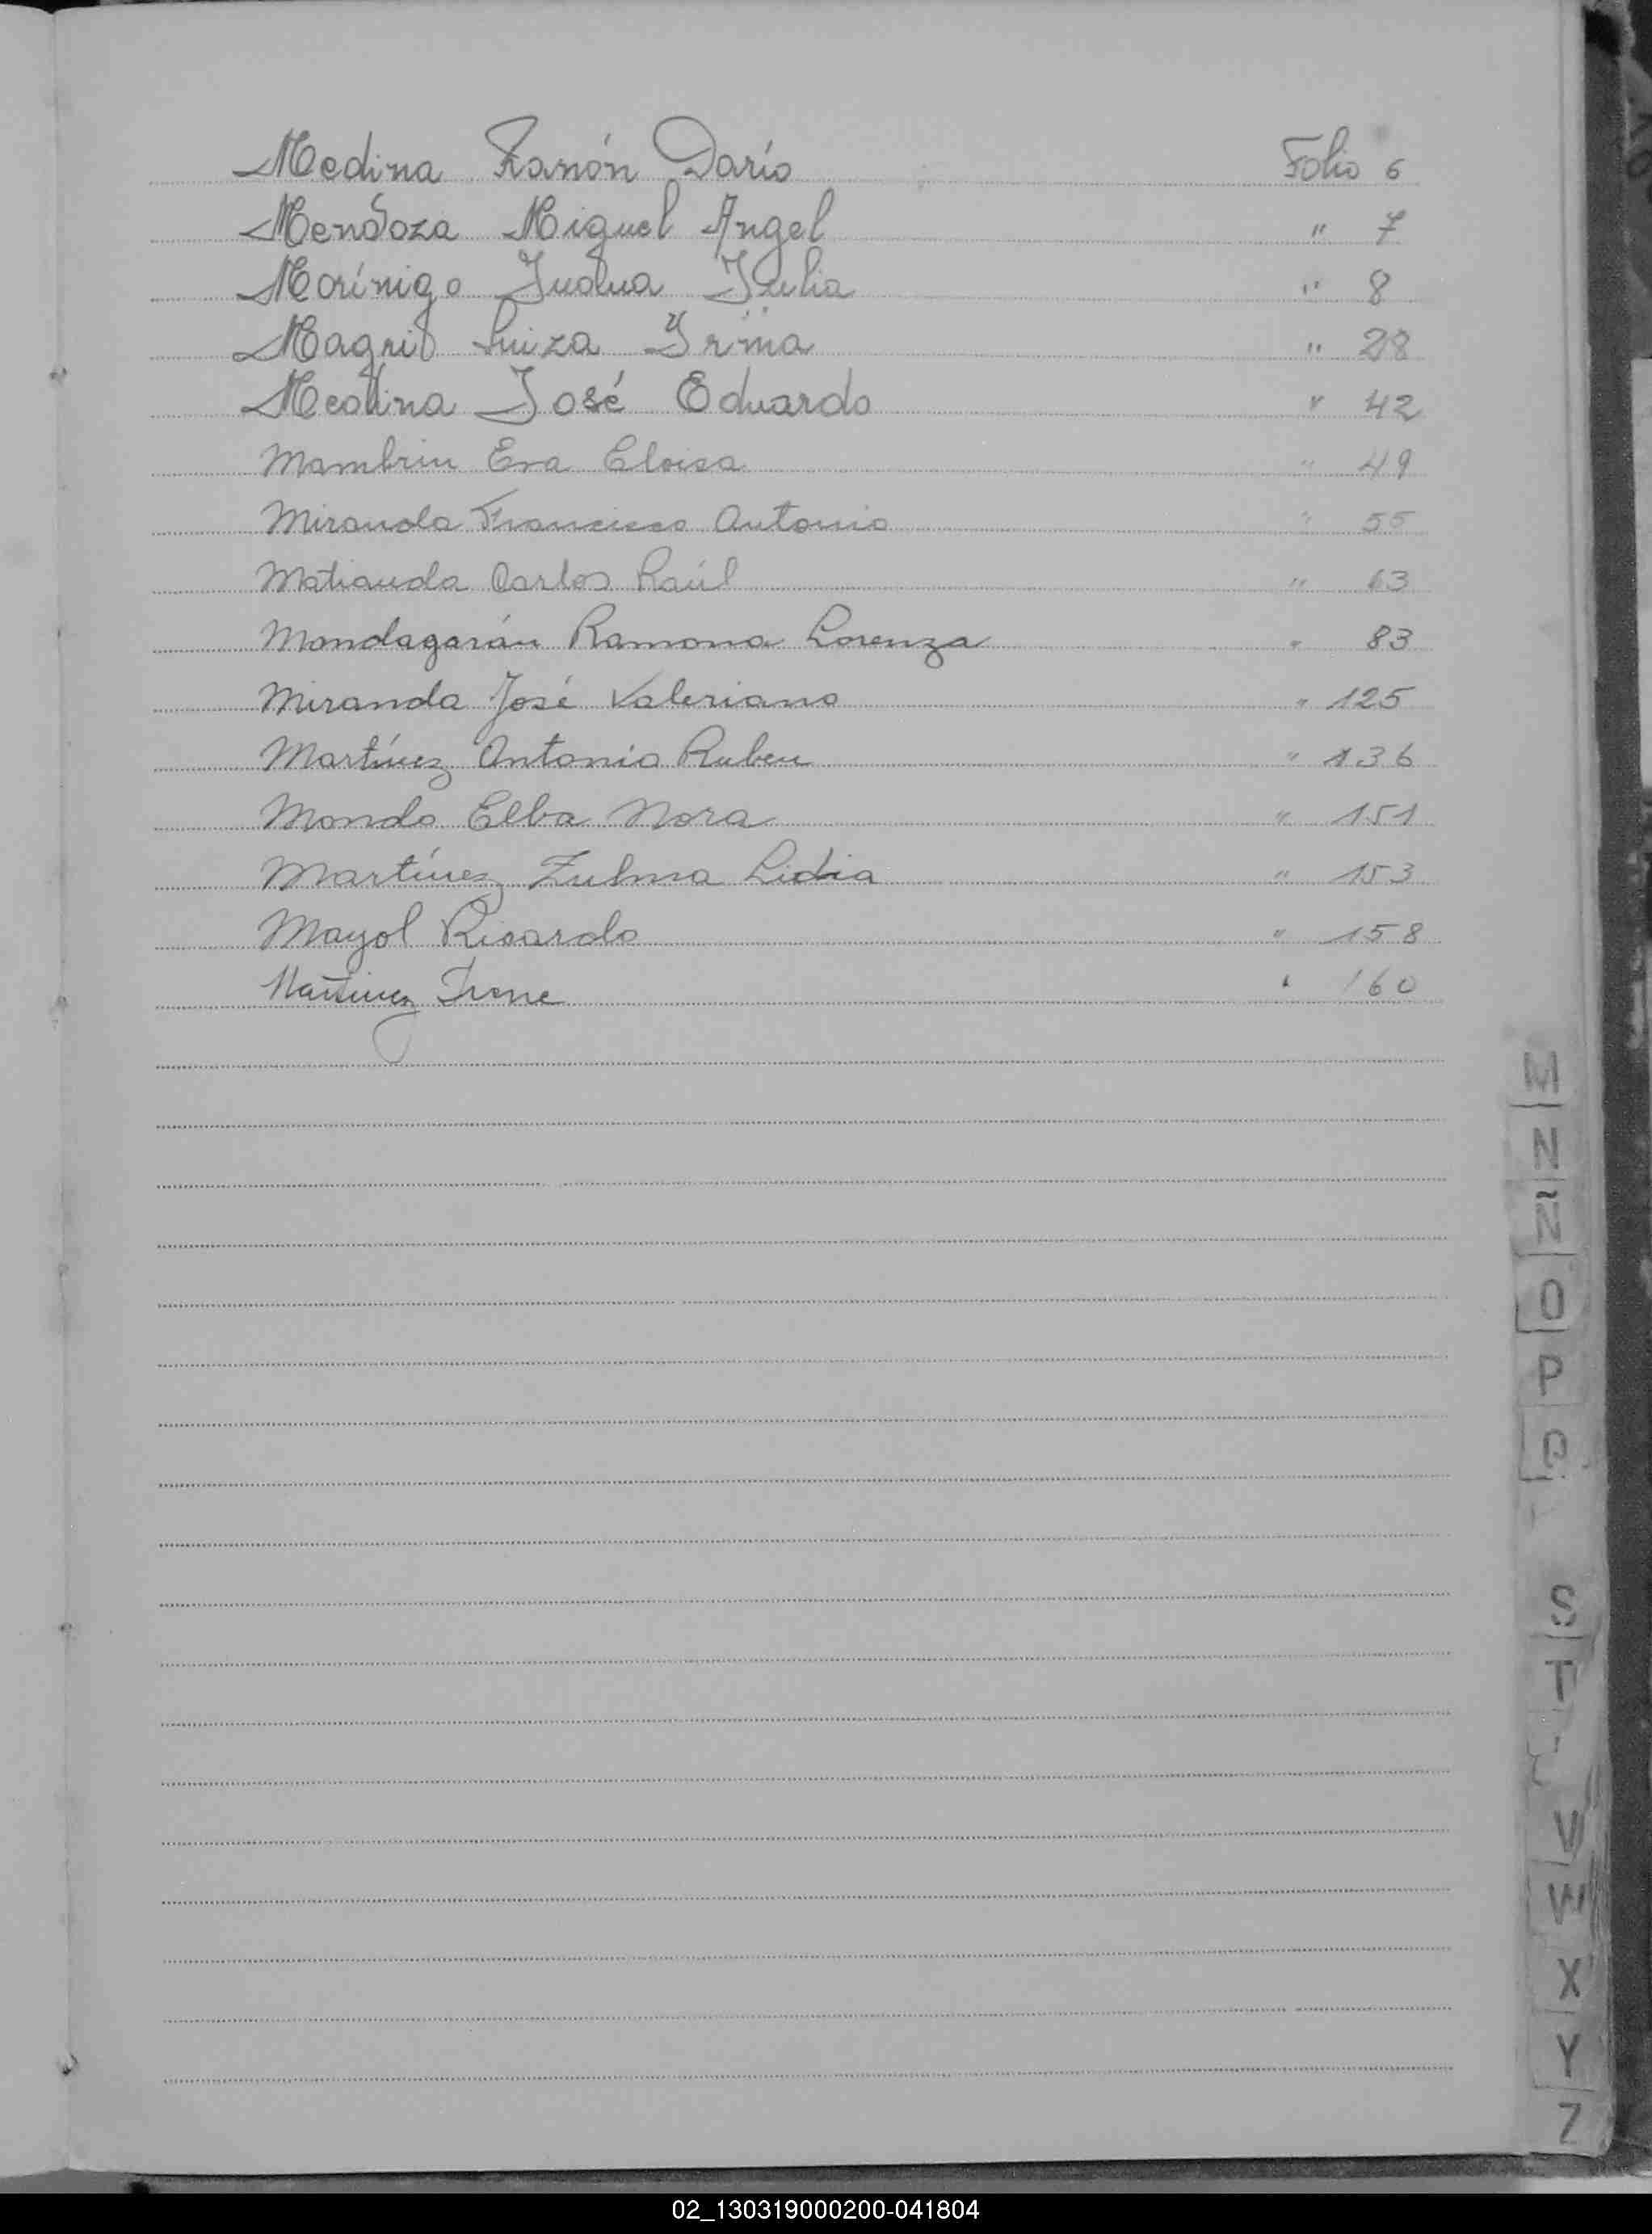 Medina Ramón Darío Folio 6
Mendoza Miguel Angel " 7
Morínigo Julia " 8
Luiza Irma " 28
Medina José Eduardo " 42
Mambrin Eva Eloisa " 49
Miranda Francisco Antonio " 55
Matiauda Carlos Raúl " 63
Mondagarán Ramona Lorenza " 83
Miranda José Valeriano " 125
Martínez Antonio Ruben " 136
Mondo Elba Nora " 151
Martínez Zulma Lidia " 153
Mayol Ricardo " 158
Martinez Irene " 160
M
N
Ñ
O
P
Q
S
T
V
W
X
Y
Z
02_130319000200-041804